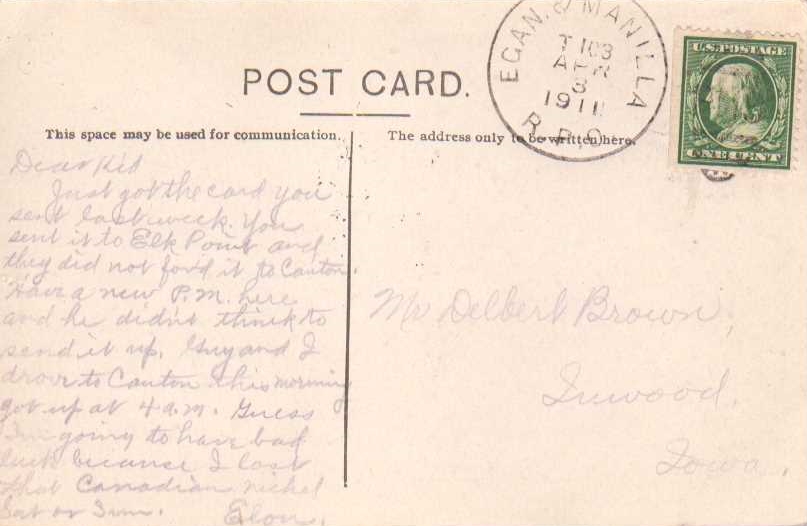 POST CARD.
EGAN. & MANILLA
T 103
APR
3
1911
R.P.O.
U.S. POSTAGE
ONE CENT
This space may be used for communication.
The address only to be written here.
Dear Kid
Just got the card you
sent last week. You
sent it to Elk Point and
they did not for'd it to Canton.
Have a new P.M. here
and he didn't think to
send it up. Guy and I
drove to Canton this morning
got up at 4 a.m. Guess
I'm going to have bad
luck because I lost
that Canadian nickel
Sat or Sun.
Mr Delbert Brown,
Inwood.
Iowa.